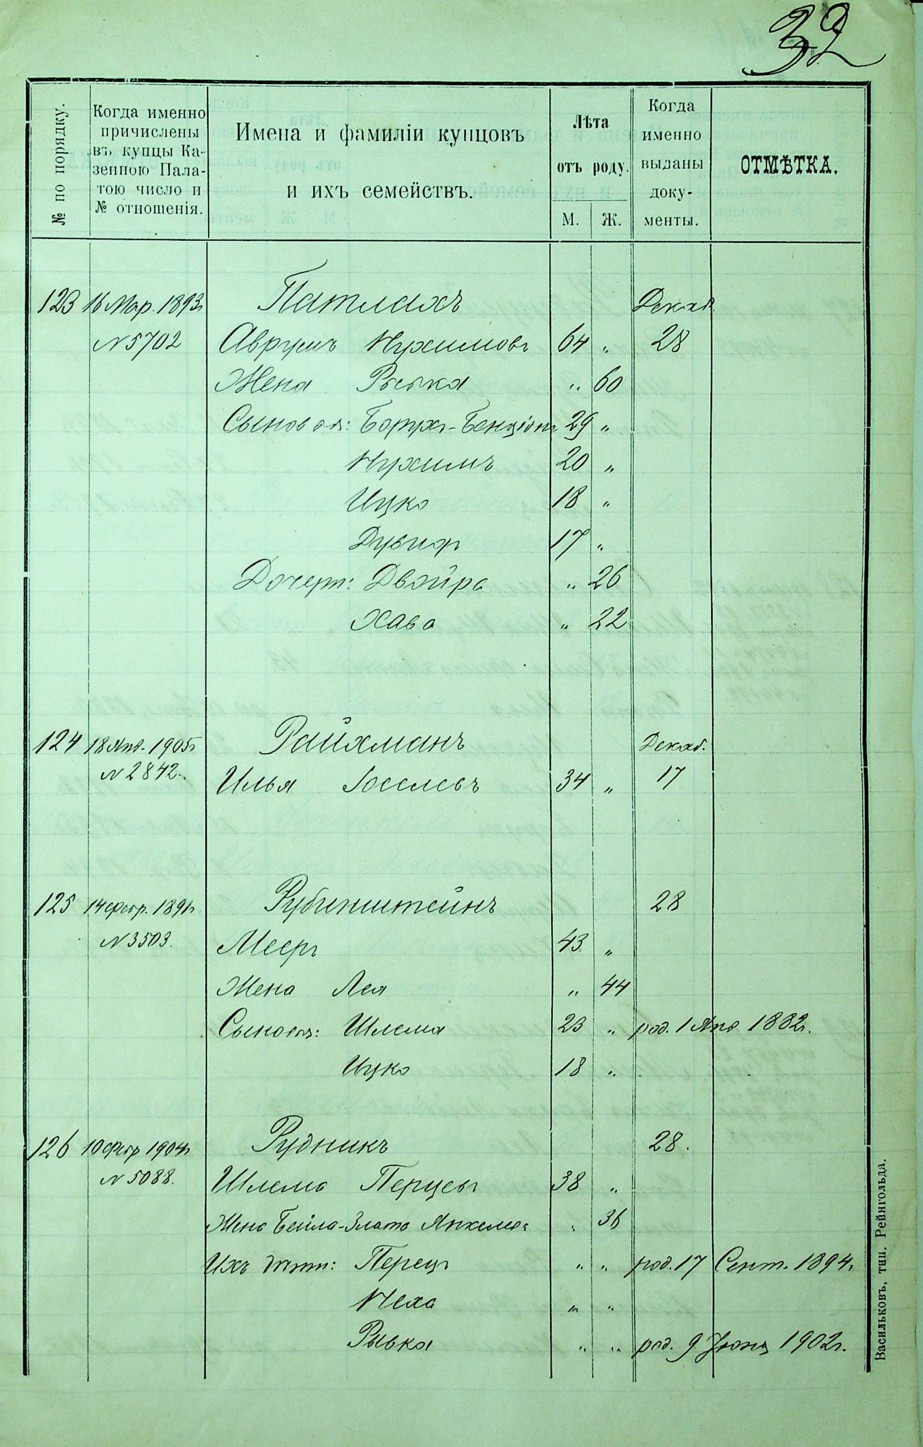 32
№ по порядку.
Когда именно причислены въ купцы Казенною Палатою число и № отношенія.
Имена и фамиліи купцовъ и ихъ семействъ.
Лѣта отъ роду.
М. Ж.
Когда именно выданы документы.
ОТМѢТКА.
123 16 Мар. 1893г. Патлахъ Декаб.
№ 5702 Аврумъ Нухимовъ 64 „ 28
Жена Рыська „ 60
Сыновья: Борухъ-Бенціонъ 29 „
Нухимъ 20 „
Ицко 18 „
Дувидъ 17 „
Дочери: Двойра „ 26
Хава „ 22
124 18 Янв. 1905г. Райхманъ Декаб.
№ 2842. Илья Іоселевъ 34 „ 17
125 14 Февр. 1891г. Рубинштейнъ 28
№ 3503. Мееръ 43 „
Жена Лея „ 44
Сыновья: Шлема 23 „ род. 1 Янв. 1882г.
Ицко 18 „
126 10 Февр 1904г. Рудникъ 28.
№ 5088. Шлема Перцевъ 38 „
Жена Бейла-Злата Янкелева „ 36
Ихъ дѣти: Перецъ „ „ род. 17 Сент. 1894г.
„ „
Ривка „ „ род. 9 Іюня 1902г.
Васильковъ, тип. Рейнгольда.